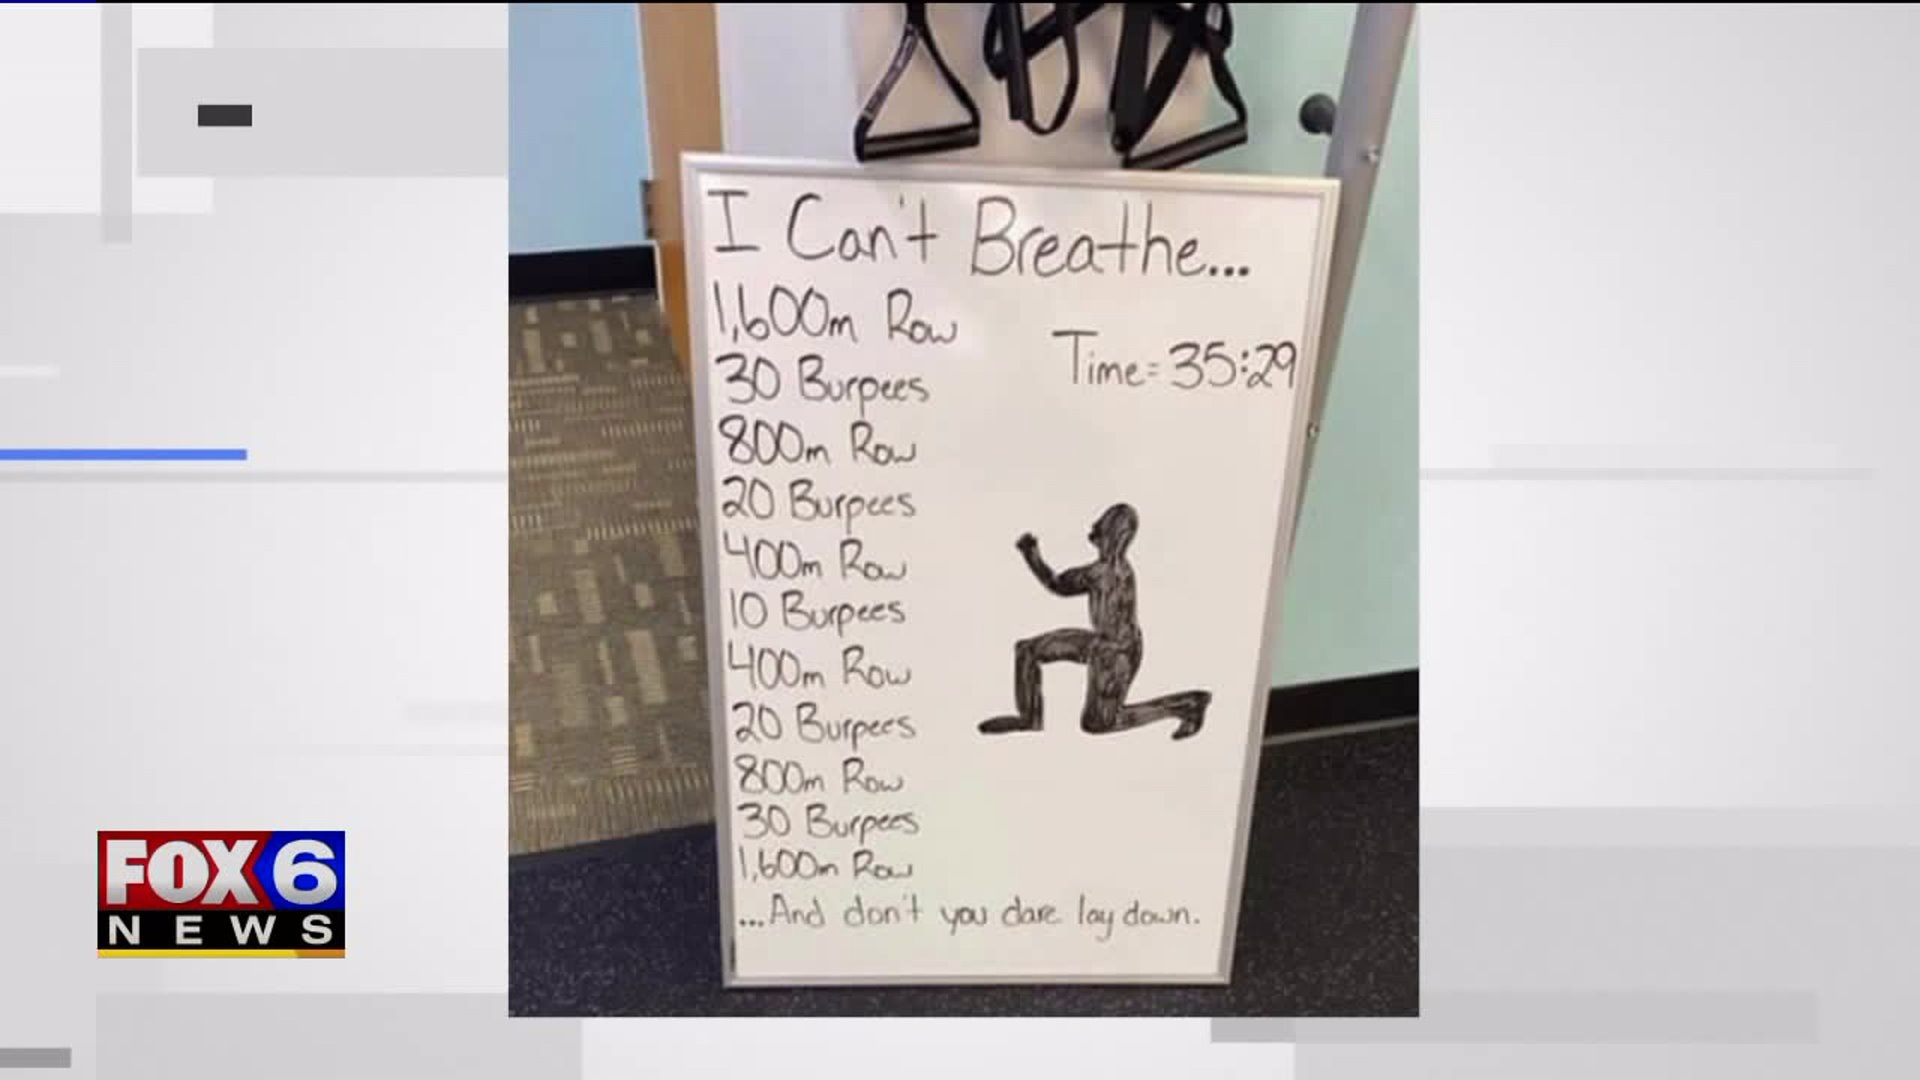 I Can't Breathe...
1,600m Row
Time = 35:29
30 Burpees
800m Row
20 Burpees
400m Row
10 Burpees
400m Row
20 Burpees
800m Row
30 Burpees
1,600m Row
...And don't you dare lay down.
FOX 6
NEWS